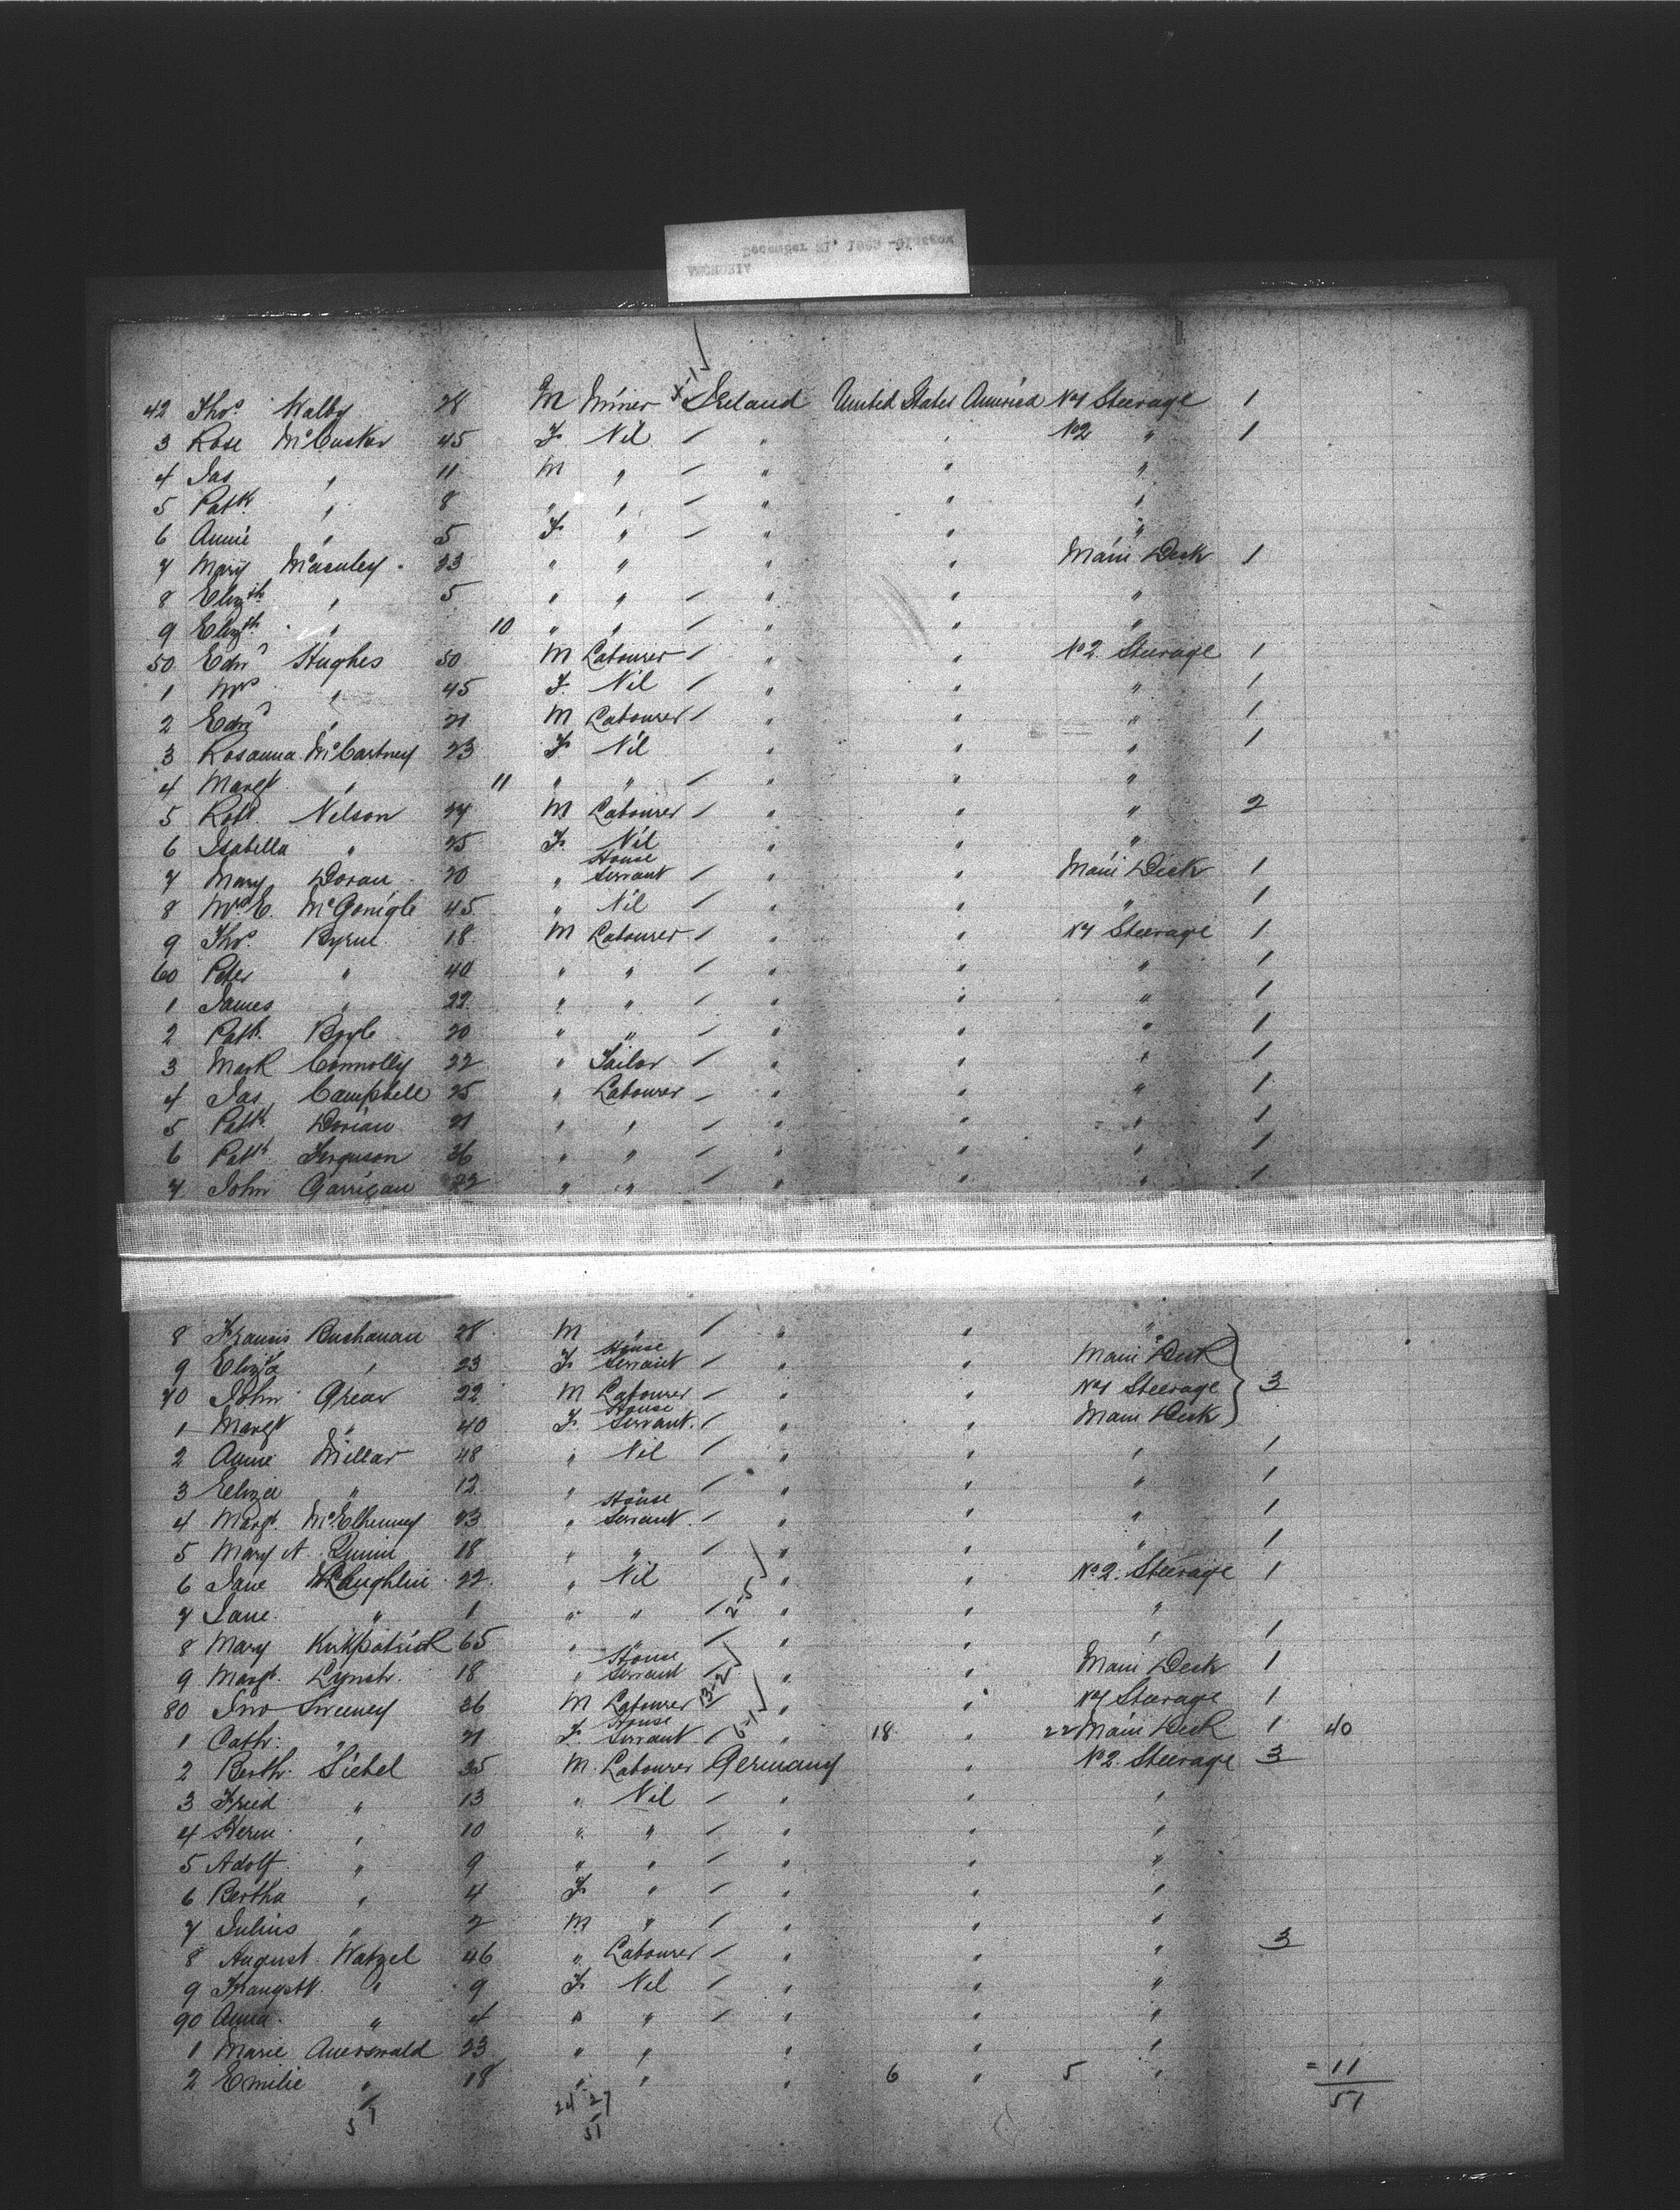 42 Thos Walby 28 M Miner Ireland United States America No1 Steerage 1
3 Rose McCusker 45 F Nil / " " No2 " 1
4 Jas " 11 M " / " " "
5 Patk " 8 " " / " " "
6 Annie " 5 F " / " " "
7 Mary Macauley 23 " " " " Main Deck 1
8 Elizth " 5 " " / " " "
9 Elizth " 10 " " / " " "
50 Edwd Hughes 50 M Labourer / " " No2 Steerage 1
1 Mrs " 45 F Nil / " " " 1
2 Edwd " 21 M Labourer / " " " 1
3 Rosanna McCartney 23 F Nil " " " 1
4 Margt " 11 " " / " " "
5 Robt Nelson 24 M Labourer / " " " 2
6 Isabella " 25 F Nil " " "
7 Mary Doran 20 " House Servant / " " Main Deck 1
8 Mrs E. McGonigle 45 " Nil / " " " 1
9 Thos Byrne 18 M Labourer / " " No1 Steerage 1
60 Peter " 40 " " / " " " 1
1 James " 22 " " / " " " 1
2 Patk Boyle 20 " " / " " " 1
3 Mark Connolly 22 " Tailor / " " " 1
4 Jas Campbell 25 " Labourer / " " " 1
5 Patk Dorian 21 " " / " " " 1
6 Patk Ferguson 26 " " / " " " 1
7 John Garrigan 22 " " / " " " 1
8 Francis Buchanan 28 M " / " " "
9 Eliza " 23 F House Servant / " " Main Deck
70 John Grear 22 M Labourer / " " No1 Steerage 3
1 Margt " 40 F House Servant / " " Main Deck
2 Annie Millar 48 " Nil / " " " 1
3 Eliza " 12 " " / " " " 1
4 Margt McElhenney 23 " House Servant / " " " 1
5 Mary A Quinn 18 " " / " " " 1
6 Jane McLaughlin 22 " Nil " " No2 Steerage 1
7 Jane " 1 " " / 2-5 " " "
8 Mary Kirkpatrick 65 " " / " " " 1
9 Margt Lynch 18 " House Servant / " " Main Deck 1
80 Jno Sweeney 26 M Labourer 13-2 / " " No1 Steerage 1
1 Cath " 21 F House Servant / 6-1 " 18 " 22 Main Deck 1 40
2 Berth Siebel 35 M Labourer Germany " No2 Steerage 3
3 Fried " 13 " Nil / " " "
4 Herm " 10 " " / " " "
5 Adolf " 9 " " / " " "
6 Bertha " 4 F " / " " "
7 Julius " 2 M " / " " "
8 August Watzel 46 " Labourer / " " " 3
9 " 9 F Nil / " " "
90 Anna " 4 " " / " " "
1 Marie Auerswald 23 " " " " "
2 Emilie " 18 " " " 6 " 5 " = 11
51
24 27
51